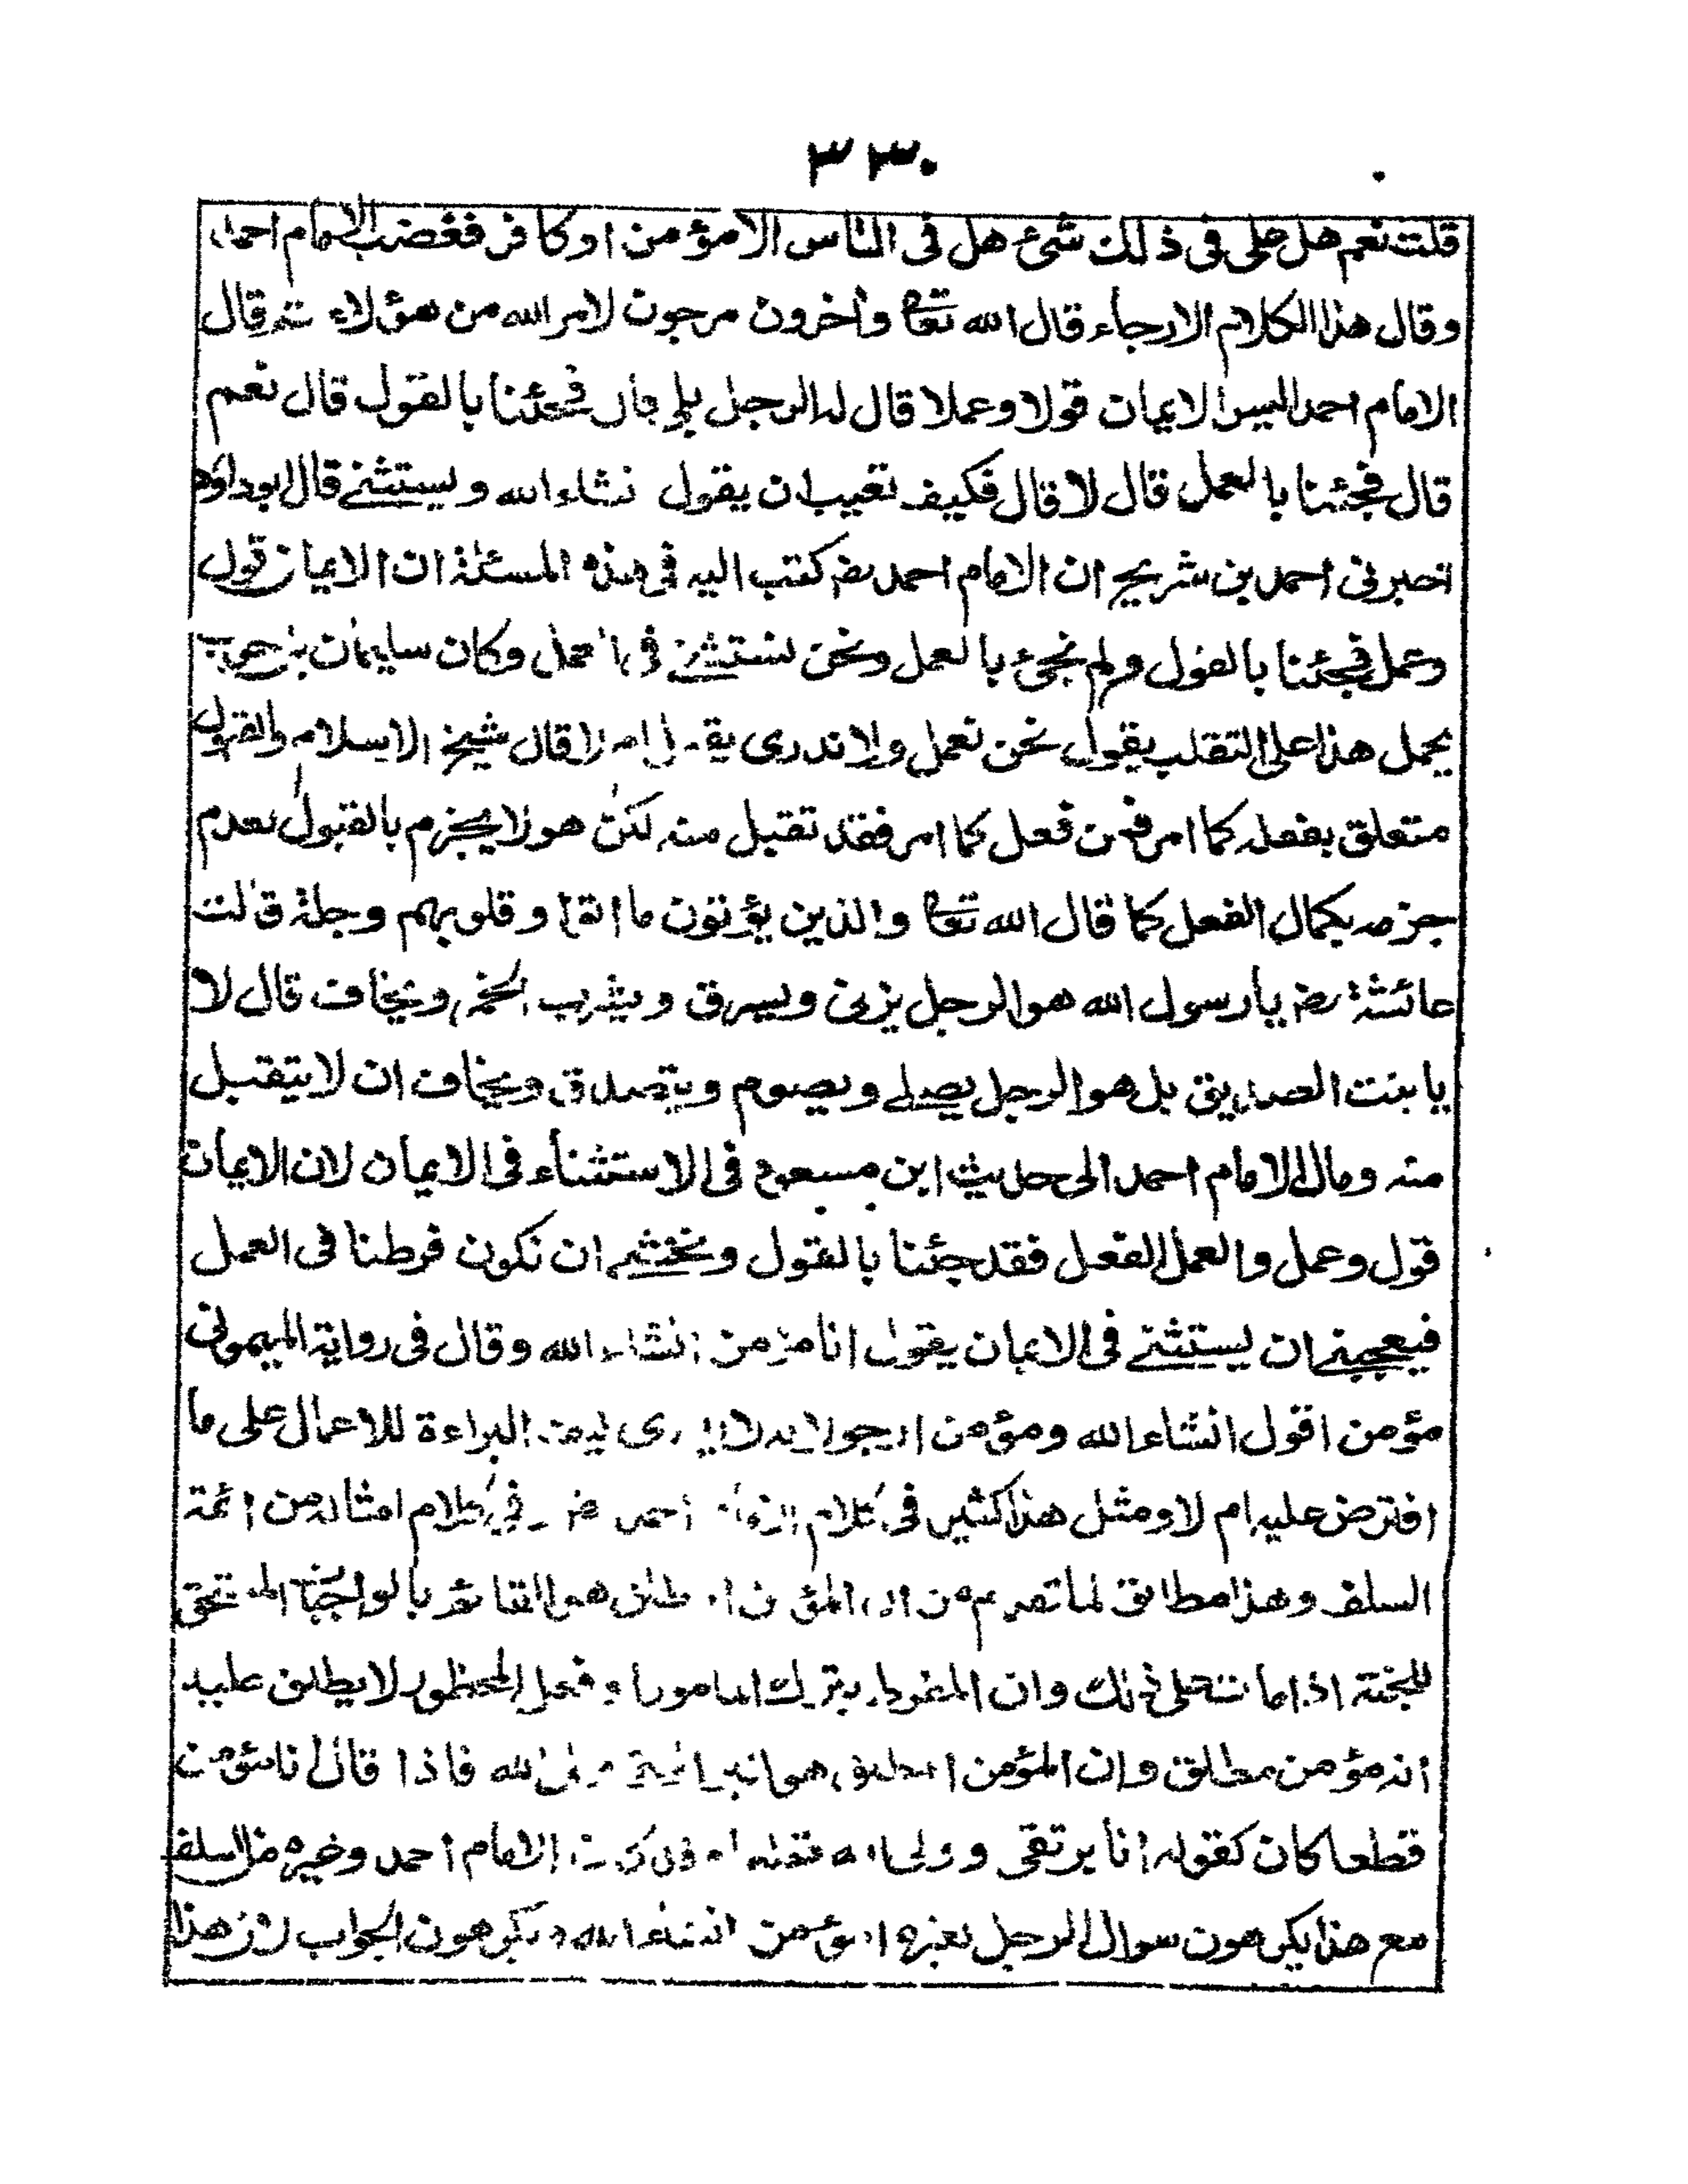 ٣٣٠
قلت نعم هل على فى ذلك شئ هل فى الناس الا مؤمن او كافر فغضب الامام احمد
وقال هذا الكلام الارجاء قال الله تعا وآخرون مرجون لامر الله من هؤلاء ثم قال
الامام احمد اليس الايمان قولا وعملا قال له الرجل بلى قال فجئنا بالقول قال نعم
قال فجئنا بالعمل قال لا قال فكيف تعيب ان يقول نشاء الله ويستثنے قال ابوداود
اخبرنى احمد بن شريح ان الامام احمد رضہ كتب اليه فى هذه المسئلة ان الايمان قول
وعمل فجئنا بالقول ولم نجئ بالعمل ونحن نستثنے فى العمل وكان سليمان بن حرب
يحمل هذا على التقلب يقول نحن نعمل ولا ندرى يقبل ام لا قال شيخ الاسلام والقبول
متعلق بفعله كما امر فمن فعل كما امر فقد تقبل منه لكن هو لا يجزم بالقبول لعدم
جزمه بكمال الفعل كما قال الله تعا والذين يؤتون ما اتوا وقلوبهم وجلة قالت
عائشة رضہ يا رسول الله هو الرجل يزنى ويسرق ويشرب الخمر ويخاف قال لا
يا بنت الصديق بل هو الرجل يصلے ويصوم ويتصدق ويخاف ان لا يتقبل
منه ومال الامام احمد الى حديث ابن مسعود فى الاستثناء فى الايمان لان الايمان
قول وعمل والعمل الفعل فقد جئنا بالقول ونخشے ان نكون فرطنا فى العمل
فيعجبنے ان يستثنے فى الايمان يقول انا مؤمن انشاء الله وقال فى رواية الميمونى
مؤمن اقول انشاء الله ومؤمن ارجو لانه لا يدرى كيف البراءة للاعمال على ما
افترض عليه ام لا ومثل هذا كثير فى كلام الامام احمد رضہ وفى كلام امثاله من ائمة
السلف وهذا مطابق لما تقدم من ان المؤمن المطلق هو القائم بالواجبات المستحق
للجنة اذا مات على ذلك وان المفرط بترك المامور او فعل المحظور لا يطلق عليه
انه مؤمن مطلق وان المؤمن المطلق هو البر التقى ولى الله فاذا قال انا مؤمن
قطعا كان كقوله انا بر تقى وولى الله قطعا وقد كان الامام احمد وغيره من السلف
مع هذا يكرهون سوال الرجل لغيره امؤمن انت انشاء الله ويكرهون الجواب لان هذا